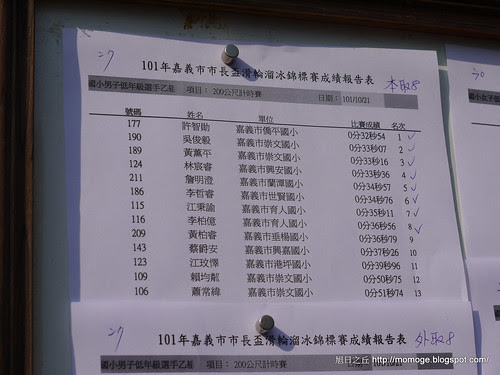 ㄋㄅ
101年嘉義市市長盃滑輪溜冰錦標賽成績報告表 本取8
國小男子低年級選手乙組 項目: 200公尺計時賽 日期: 101/10/21
號碼 姓名 單位 比賽成績 名次
177 許智勛 嘉義市僑平國小 0分32秒54 1
190 吳俊毅 嘉義市崇文國小 0分33秒07 2
189 黃薰平 嘉義市崇文國小 0分33秒16 3
124 林宸睿 嘉義市興安國小 0分33秒36 4
211 詹明澄 嘉義市蘭潭國小 0分34秒57 5
186 李哲睿 嘉義市世賢國小 0分34秒76 6
115 江秉諭 嘉義市育人國小 0分35秒11 7
116 李柏億 嘉義市育人國小 0分36秒56 8
209 黃柏睿 嘉義市垂楊國小 0分36秒79 9
143 蔡爵安 嘉義市興嘉國小 0分37秒26 10
123 江玟懌 嘉義市港坪國小 0分39秒96 11
109 賴均航 嘉義市崇文國小 0分50秒75 12
106 蕭常緯 嘉義市崇文國小 0分51秒74 13
101年嘉義市市長盃滑輪溜冰錦標賽成績報告表 外取8
國小男子低年級選手乙組 項目: 200公尺計時賽 日期: 101/10/21
旭日之丘 http://momoge.blogspot.com/